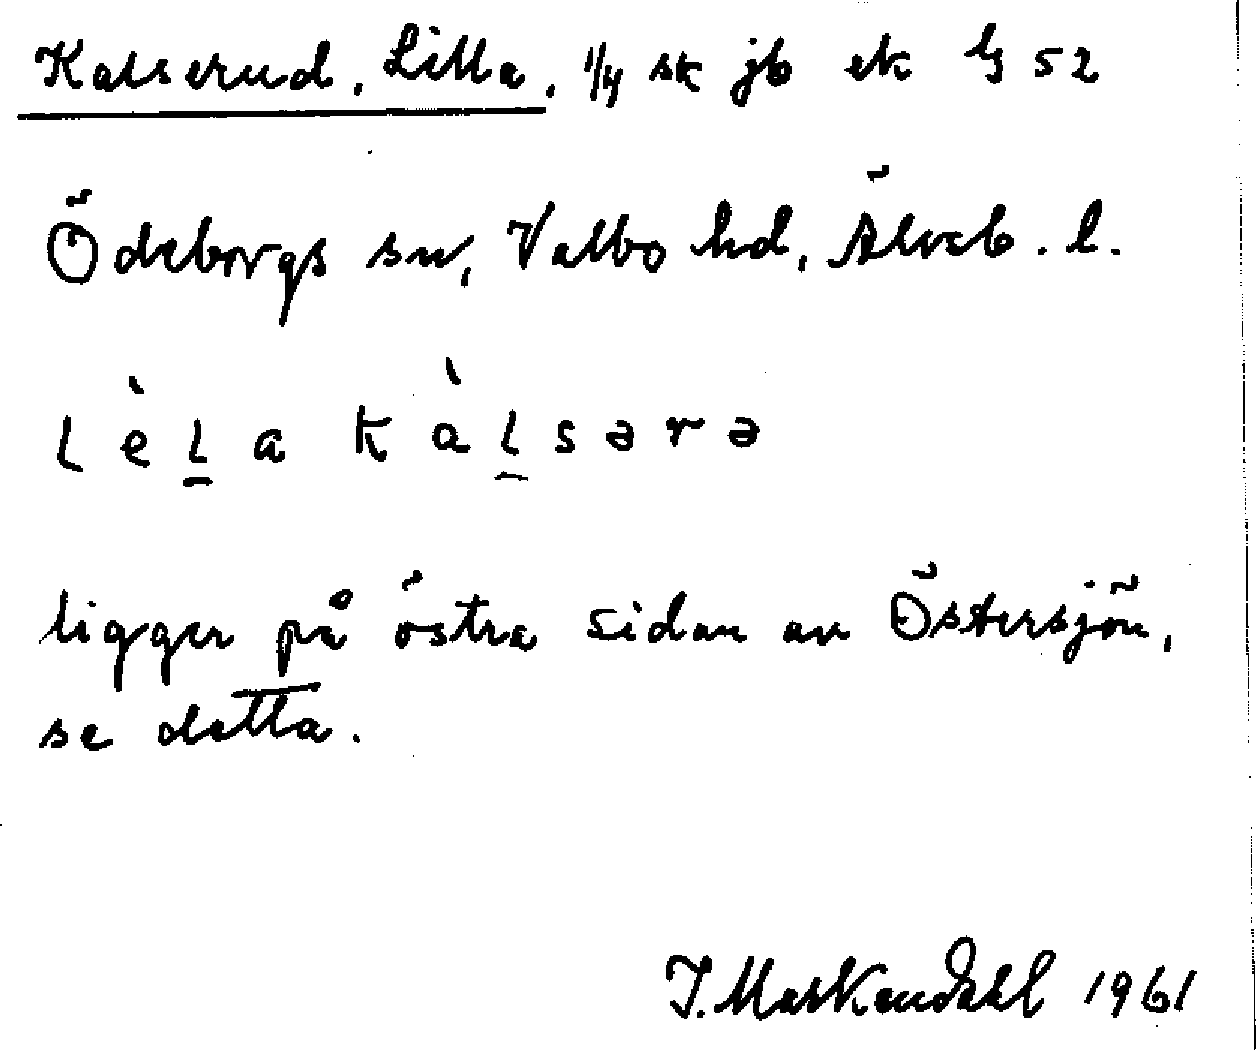 Kalserud, Lilla, 1/4 sk jb ek G 52
Ödeborgs sn, Valbo hd, Älvsb. l.
l è l̲ a k à l̲ s ə r ə
ligger på östra sidan av Östersjön,
se detta.
1961